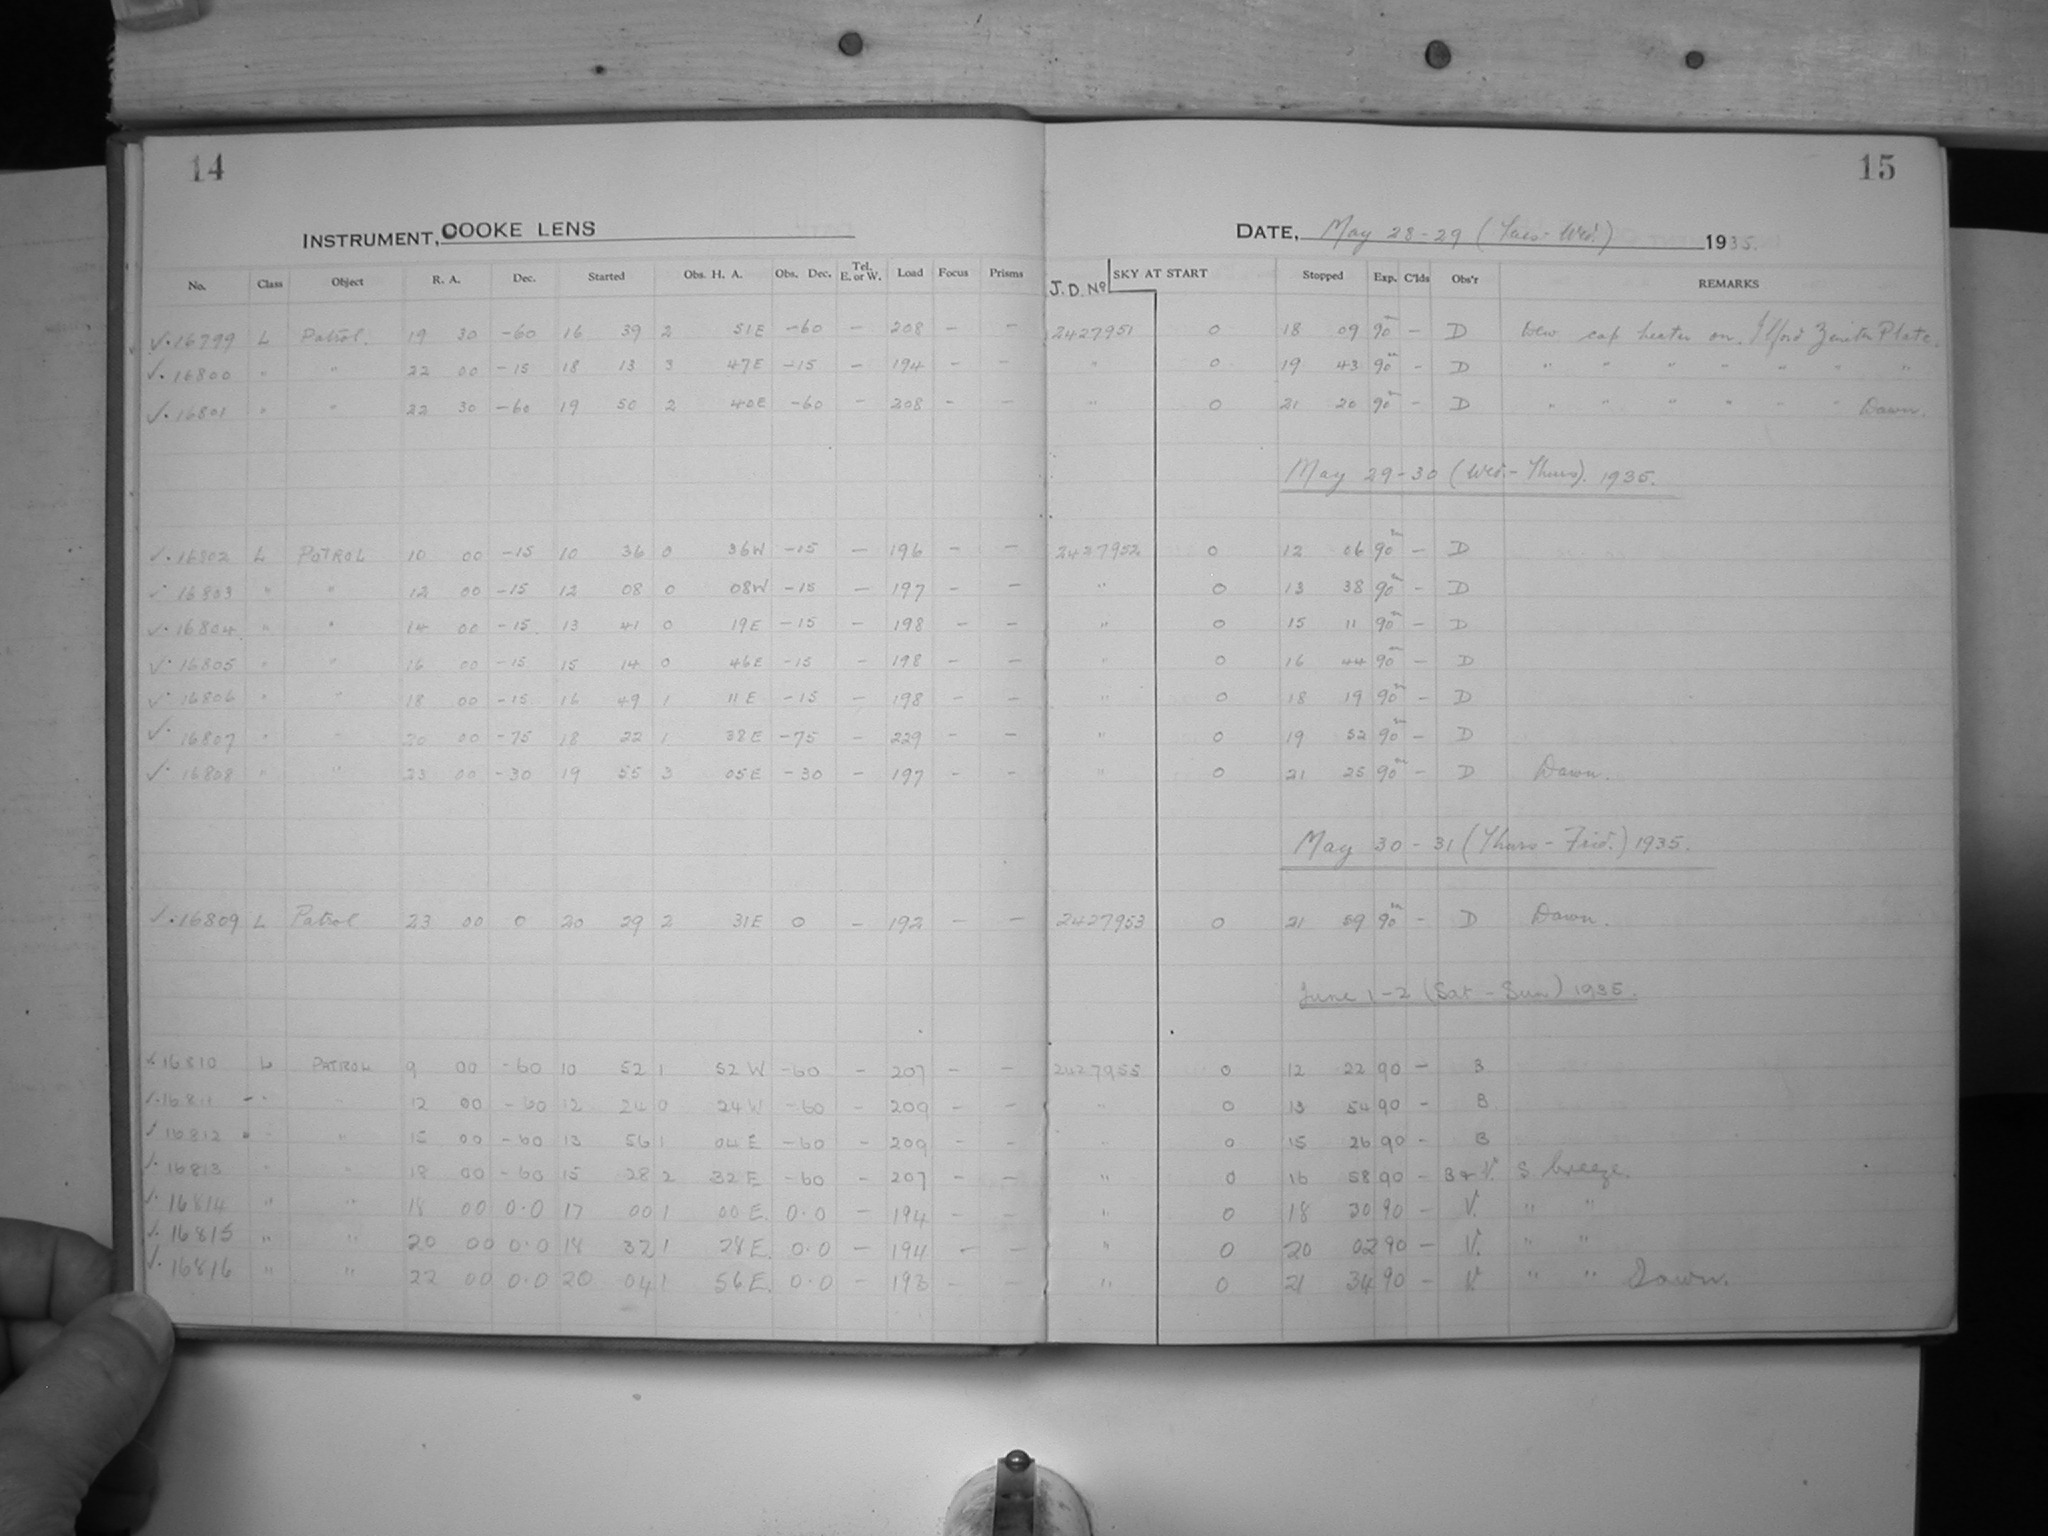 14
15
INSTRUMENT, COOKE LENS
DATE, May 28-29 (Tues-Wed.) 1935.
No. Class Object R. A. Dec. Started Obs. H. A. Obs. Dec. Tel. E. or W. Load Focus Prisms J.D. No SKY AT START Stopped Exp. C'lds Obs'r REMARKS
✓·16799 L Patrol. 19 30 -60 16 39 2 51E -60 - 208 - - 2427951 0 18 09 90m - D Dew cap heater on. Ilford Zenith Plate.
✓·16800 " " 22 00 -15 18 13 3 47E -15 - 194 - - " 0 19 43 90m - D " " " " " " "
✓·16801 " " 22 30 -60 19 50 2 40E -60 - 208 - - " 0 21 20 90m - D " " " " " " Dawn.
May 29-30 (Wed.-Thurs). 1935.
✓·16802 L PATROL 10 00 -15 10 36 0 36W -15 - 196 - - 2427952 0 12 06 90m - D
✓ 16803 " " 12 00 -15 12 08 0 08W -15 - 197 - - " 0 13 38 90m - D
✓·16804 " " 14 00 -15 13 41 0 19E -15 - 198 - - " 0 15 11 90m - D
✓·16805 " " 16 00 -15 15 14 0 46E -15 - 198 - - " 0 16 44 90m - D
✓·16806 " " 18 00 -15 16 49 1 11E -15 - 198 - - " 0 18 19 90m - D
✓·16807 " " 20 00 -75 18 22 1 38E -75 - 229 - - " 0 19 52 90m - D
✓·16808 " " 23 00 -30 19 55 3 05E -30 - 197 - - " 0 21 25 90m - D Dawn.
May 30-31 (Thurs-Frid.) 1935.
✓·16809 L Patrol 23 00 0 20 29 2 31E 0 - 192 - - 2427953 0 21 59 90m - D Dawn.
June 1-2 (Sat-Sun) 1935.
✓·16810 L PATROL 9 00 -60 10 52 1 52W -60 - 207 - - 2427955 0 12 22 90 - B
✓·16811 " " 12 00 -60 12 24 0 24W -60 - 209 - - " 0 13 54 90 - B.
✓·16812 " " 15 00 -60 13 56 1 04E -60 - 209 - - " 0 15 26 90 - B
✓·16813 " " 18 00 -60 15 28 2 32E -60 - 207 - - " 0 16 58 90 - B & V. S. breeze.
✓·16814 " " 18 00 0.0 17 00 1 00E. 0.0 - 194 - - " 0 18 30 90 - V. " "
✓·16815 " " 20 00 0.0 18 32 1 28E. 0.0 - 194 - - " 0 20 02 90 - V. " "
✓·16816 " " 22 00 0.0 20 04 1 56E. 0.0 - 193 - - " 0 21 34 90 - V. " " Dawn.